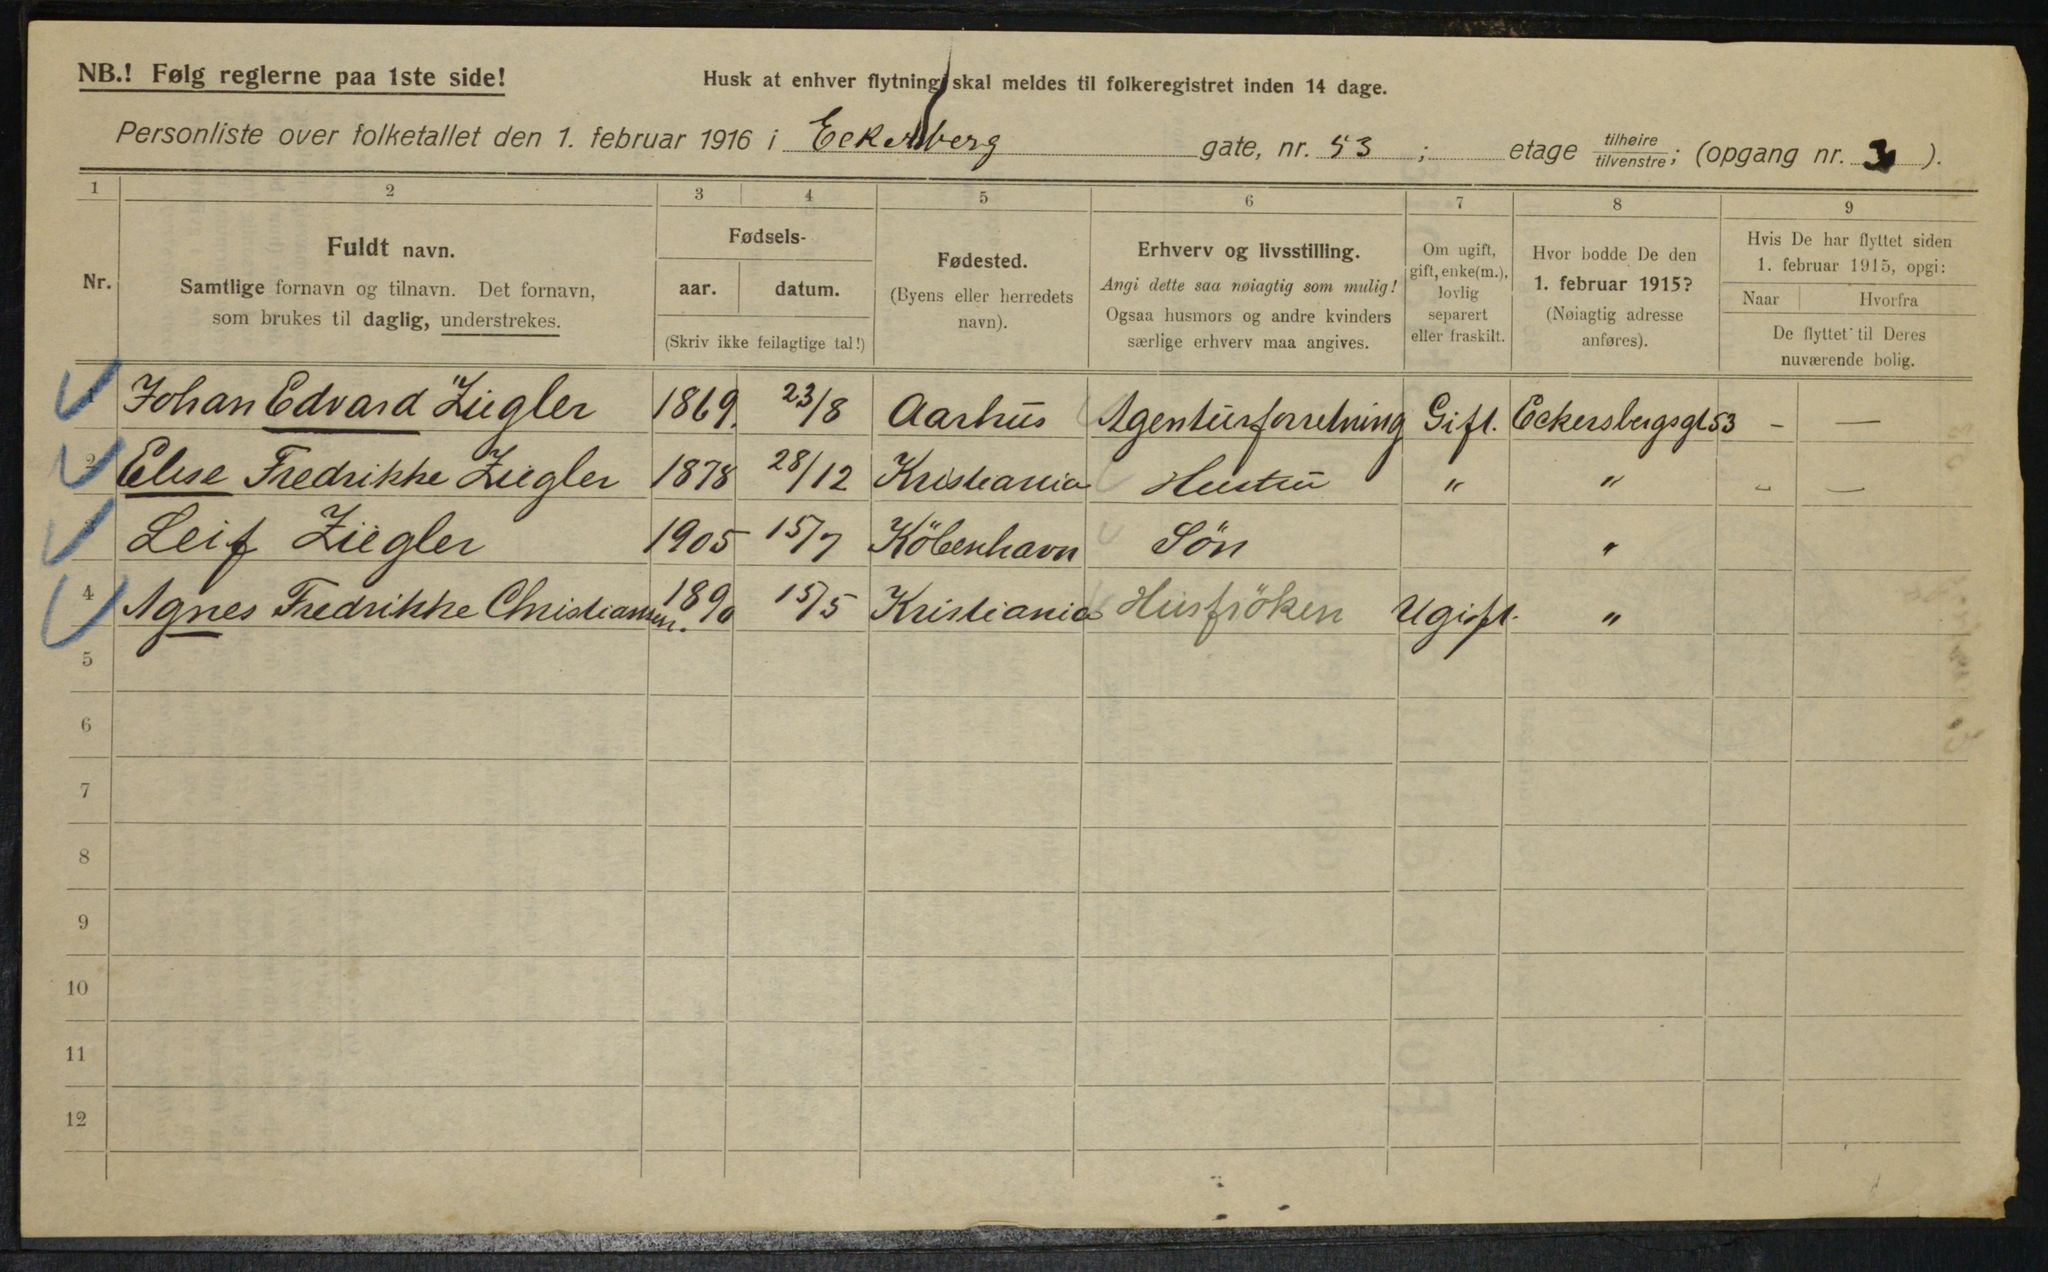 NB.! Følg reglerne paa 1ste side!
Husk at enhver flytning skal meldes til folkeregistret inden 14 dage.
Personliste over folketallet den 1. februar 1916 i Eckersberg gate, nr. 53 ; etage tilhøire tilvenstre ; (opgang nr. 3 ).
1 2 3 4 5 6 7 8 9
Nr.
Fuldt navn.
Samtlige fornavn og tilnavn. Det fornavn,
som brukes til daglig, understrekes.
Fødsels-
aar. datum.
(Skriv ikke feilagtige tal!)
Fødested.
(Byens eller herredets
navn).
Erhverv og livsstilling.
Angi dette saa nøiagtig som mulig!
Ogsaa husmors og andre kvinders
særlige erhverv maa angives.
Om ugift,
gift, enke(m.),
lovlig
separert
eller fraskilt.
Hvor bodde De den
1. februar 1915?
(Nøiagtig adresse
anføres).
Hvis De har flyttet siden
1. februar 1915, opgi:
Naar Hvorfra
De flyttet til Deres
nuværende bolig.
Johan Edvard Ziegler 1869. 23/8 Aarhus Agenturforretning Gift. Eckersbergsgt 53 - —
2 Elise Fredrikke Ziegler 1878 28/12 Kristiania Hustru " " - —
3 Leif Ziegler 1905 15/7 København Søn "
4 Agnes Fredrikke Christiansen. 1890 15/5 Kristiania Husfrøken Ugift. "
5
6
7
8
9
10
11
12